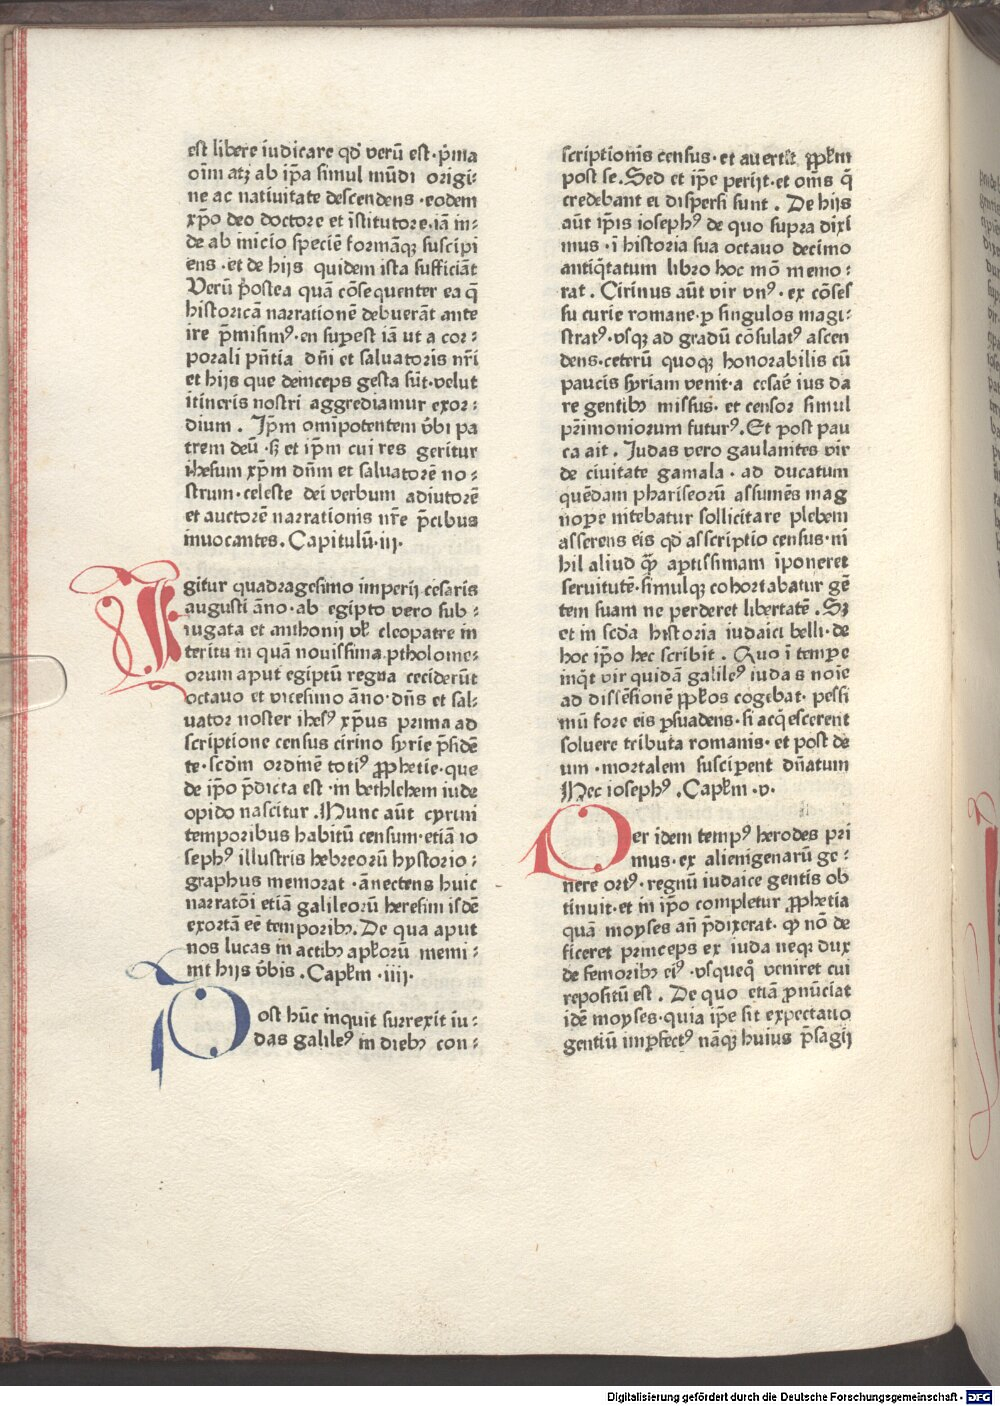 est libere iudicare qđ verū est·p̄ma
oīm atꝫ ab ip̄a simul mūdi origi⸗
ne ac natiuitate descendens·eodem
xp̄o deo doctore et īstitutore·iā in⸗
de ab inicio speciē formāqꝫ suscipi
ens·et de hijs quidem ista sufficiāt
Verū postea quā cōsequenter ea q̄
historicā narrationē debuerāt ante
ire p̄misimꝰ·en suꝑest iā ut a cor⸗
porali p̄ntia dn̄i et saluatoris nr̄i
et hijs que deinceps gesta sūt·velut
itineris nostri aggrediamur exor⸗
dium. Ip̄m om̄ipotentem v̄bi pa
trem deū·sꝫ et ip̄m cui res geritur
ihesum xp̄m dn̄m et saluatorē no⸗
strum·celeste dei verbum adiutorē
et auctorē narrationis nr̄e p̄cibus
inuocantes. Capitulū·iij·
Igitur quadragesimo imperij cesaris
augusti āno·ab egipto vero sub⸗
iugata et anthonij vł cleopatre in
teritu in quā nouissima ptholome⸗
orum aput egiptū regna ceciderūt
octauo et vicesimo āno·dn̄s et sal⸗
uator noster ihesꝰ xp̄us prima ad
scriptione census cirino syrie p̄sidē
te·scđm ordinē totiꝰ ꝓphetie·que
de ip̄o p̄dicta est·in bethlehem iude
opido nascitur. Nunc aūt cyrini
temporibus habitū censum·etiā io
sephꝰ illustris hebreorū hystorio⸗
graphus memorat·ānectens huic
narratōi etiā galileorū heresim isdē
exortā eē temporibꝫ. De qua aput
nos lucas in actibꝫ apłorū memi⸗
nit hijs v̄bis. Capłm·iiij·
Post hūc inquit surrexit iu⸗
das galileꝰ in diebꝫ con⸗
scriptionis census·et auertit ꝓpłm
post se. Sed et ip̄e perijt·et om̄s q̄
credebant ei dispersi sunt. De hijs
aūt ip̄is iosephꝰ de quo supra dixi
mus·ī historia sua octauo decimo
antiq̄tatum libro hoc mō memo⸗
rat. Cirinus aūt vir vnꝰ·ex cōses
su curie romane·ꝑ singulos magi⸗
stratꝰ·vsqꝫ ad gradū cōsulatꝰ ascen
dens·ceterū quoqꝫ honorabilis cū
paucis syriam venit·a cesaē ius da
re gentibꝫ missus·et censor simul
pr̄imoniorum futurꝰ. Et post pau
ca ait. Judas vero gaulanites vir
de ciuitate gamala·ad ducatum
quēdam phariseorū assumēs mag
noꝑe nitebatur sollicitare plebem
asserens eis qđ asscriptio census·ni
hil aliud qꝫ̄ aptissimam īponeret
seruitutē·simulqꝫ cohortabatur gē
tem suam ne perderet libertatē. Sꝫ
et in scđa historia iudaici belli·de
hoc ip̄o hec scribit. Quo ī tempe
inq̄t vir quidā galileꝰ iudas noīe
ad dissēsionē ꝓpłos cogebat·pessi
mū fore eis ꝑsuadens·si acq̄escerent
soluere tributa romanis·et post de
um·mortalem susciperent dn̄atum
Hec iosephꝰ. Capłm·v·
Per idem tempꝰ herodes pri
mus·ex alienigenarū ge⸗
nere ortꝰ·regnū iudaice gentis ob
tinuit·et in ip̄o completur ꝓphetia
quā moyses an̄ p̄dixerat·qꝫ nō de
ficeret princeps ex iuda neqꝫ dux
de femoribꝫ eiꝰ·vsquequo veniret cui
repositū est. De quo etiā ꝓnūciat
idē moyses·quia ip̄e sit expectatio
gentiū imꝑfectꝰ nāqꝫ huius p̄sagij
Digitalisierung gefördert durch die Deutsche Forschungsgemeinschaft - DFG